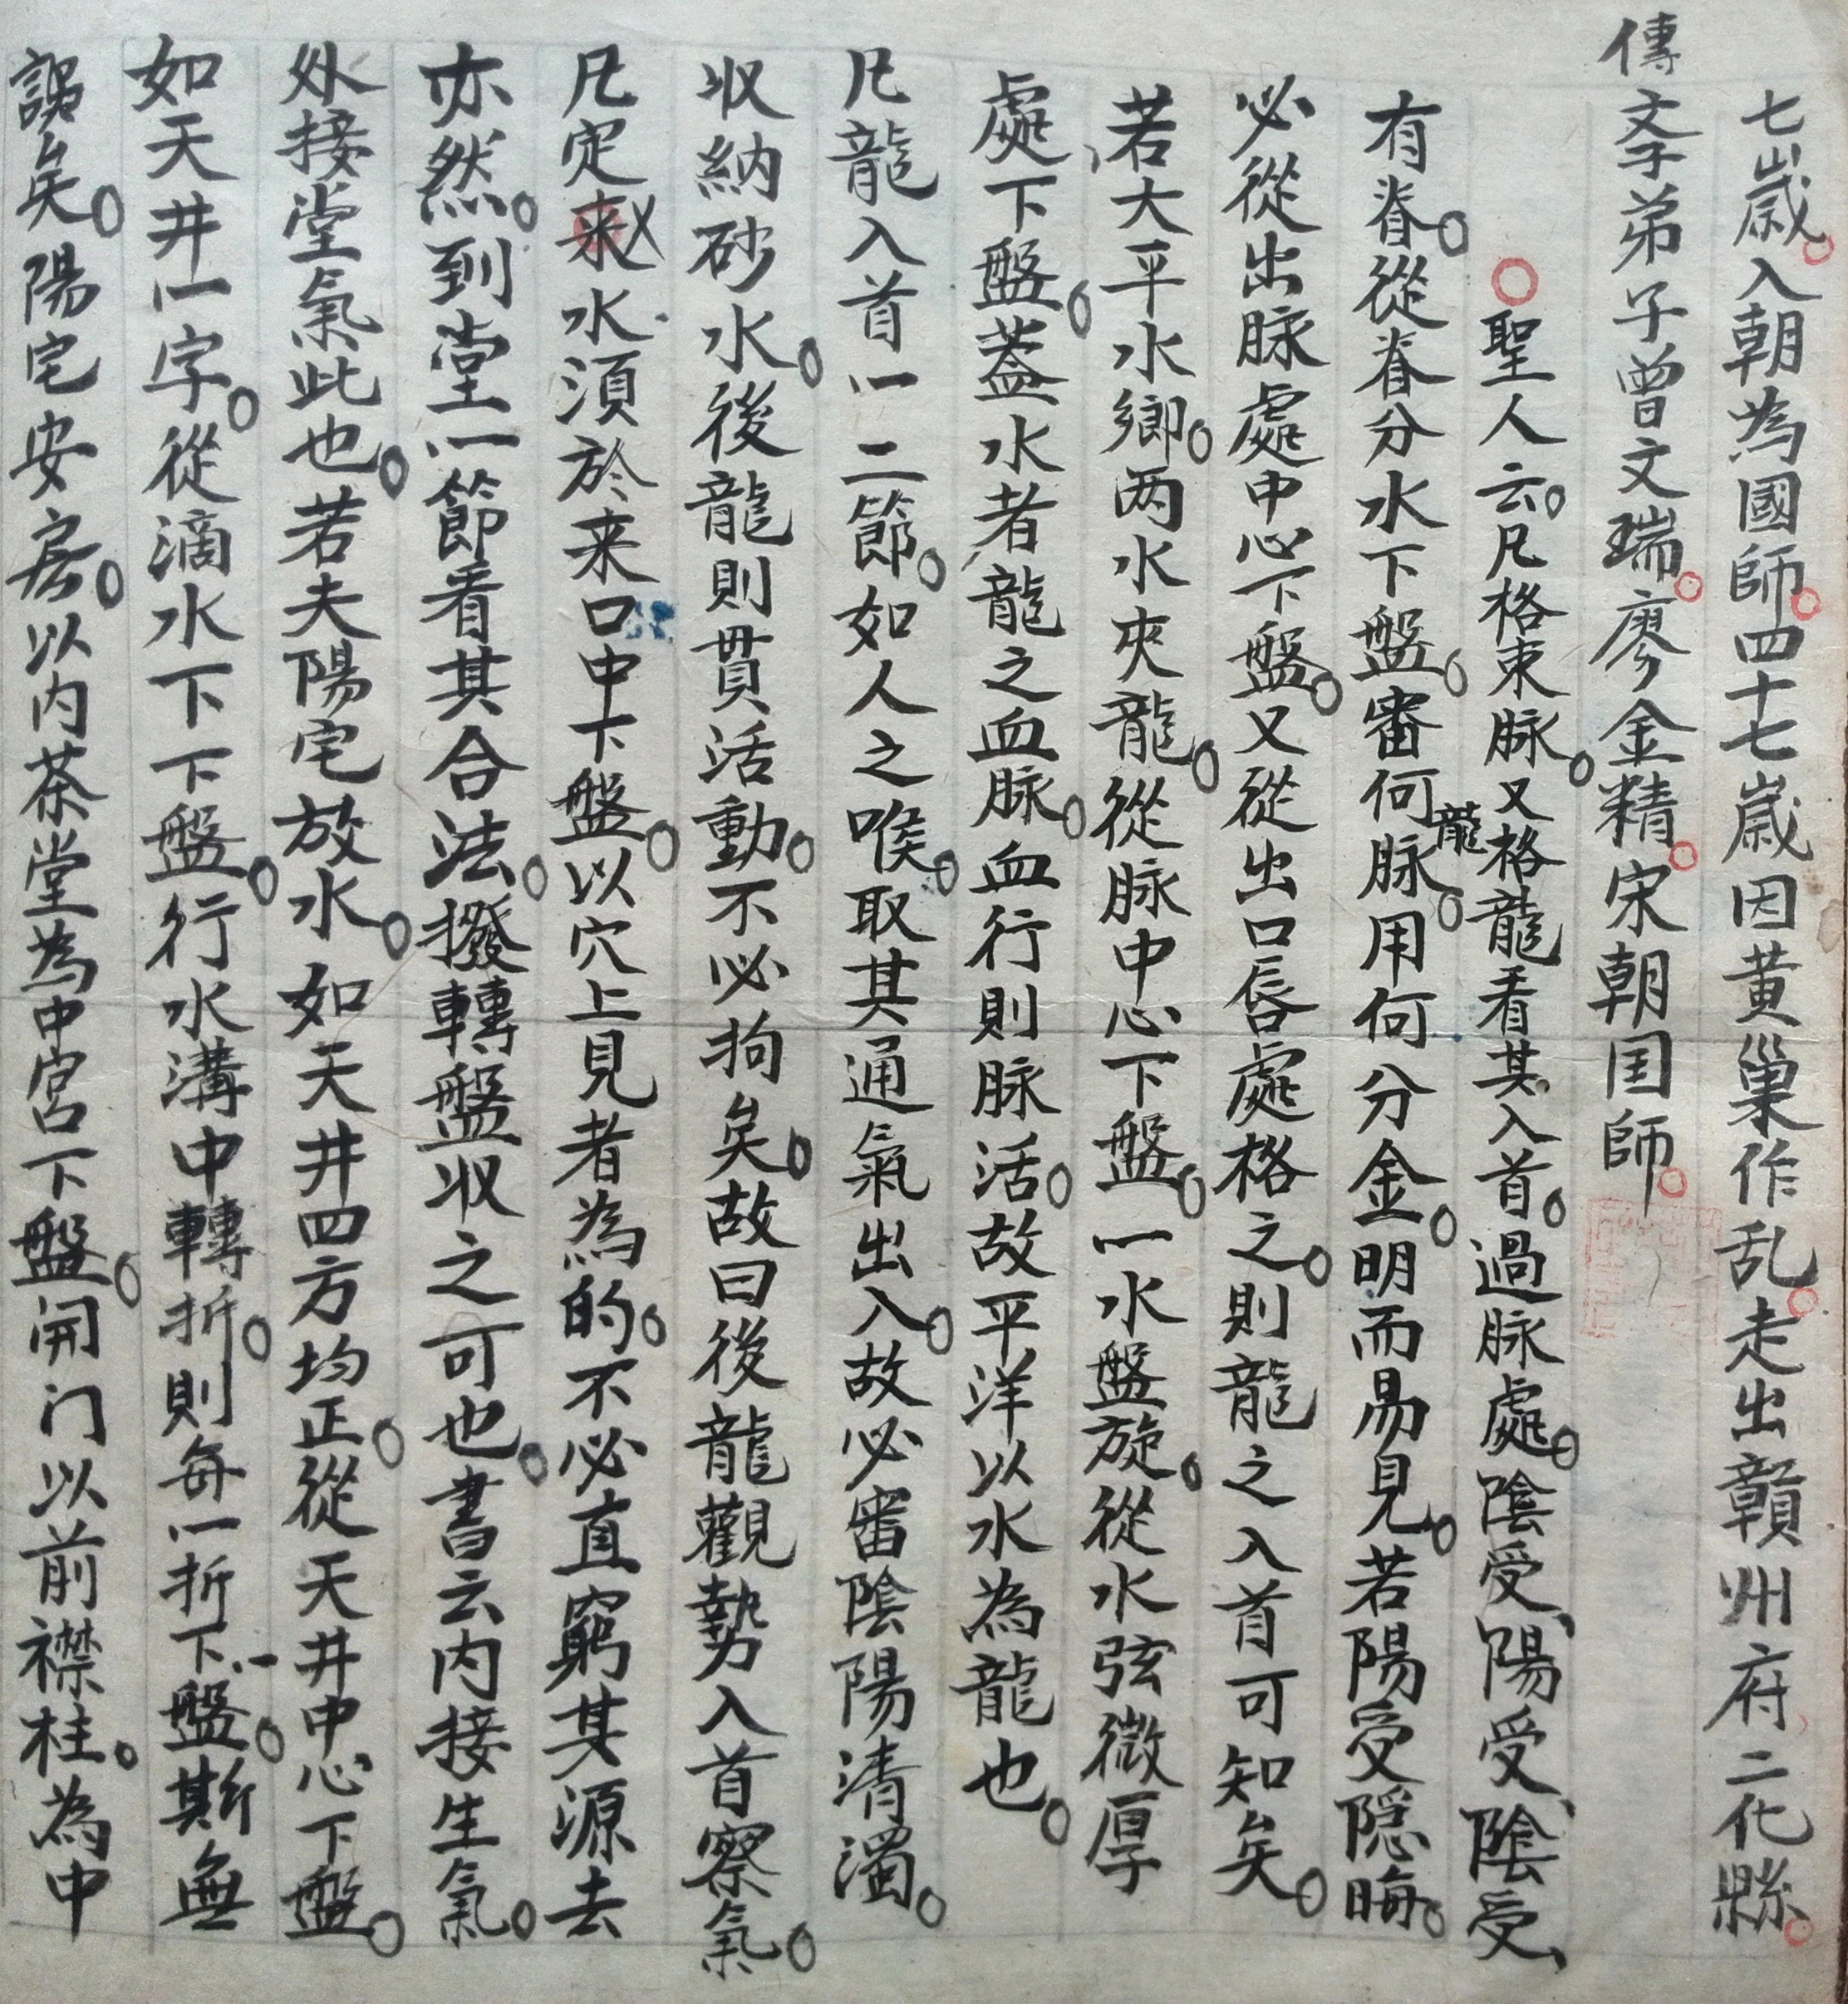 七歲入朝為國師四十七歲因黄巢作乱走出贛州府二化縣
傳文弟子曾文瑞廖金精宋朝国師
聖人云凡格束脉又格龍看其入首過脉處陰受陽受陰受
有脊從脊分水下盤審何龍脉用何分金明而易見若陽受隱晦
必從出脉處中心下盤又從出口唇處格之則龍之入首可知矣
若大平水鄉两水夾龍從脉中心下盤一水盤旋從水弦微厚
處下盤蓋水者龍之血脉血行則脉活故平洋以水為龍也
凡龍入首一二節如人之喉取其通氣出入故必審陰陽清濁
收納砂水後龍則貫活動不必拘矣故曰後龍觀勢入首察氣
凡定来水須於来口中下盤以穴上見者為的不必直窮其源去
亦然到堂一節看其合法撥轉盤收之可也書云内接生氣
外接堂氣此也若夫陽宅放水如天井四方均正從天井中心下盤
如天井一字從滴水下下盤行水溝中轉折則每一折下一盤斯無
誤矣陽宅安房以内茶堂為中宮下盤開门以前襟柱為中